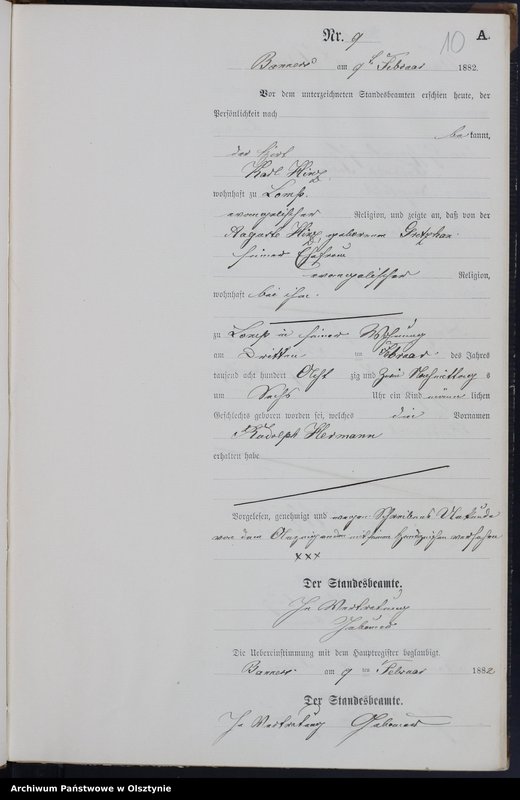 Nr. 9
10
A.
Banners am 9t Februar 1882.
Vor dem unterzeichneten Standesbeamten erschien heute, der
Persönlichkeit nach
bekannt,
der Hirt
Karl Hinz,
wohnhaft zu Lomp.
evangelischer Religion, und zeigte an, daß von der
Auguste Hinz, geborenen
seiner Ehefrau
evangelischer Religion,
wohnhaft bei ihm.
zu Lomp in seiner Wohnung
am Dritten ten Februar des Jahres
tausend acht hundert Acht zig und Zwei Nachmittag s
um Sechs Uhr ein Kind männ lichen
Geschlechts geboren worden sei, welches die Vornamen
Rudolph Hermann
erhalten habe
Vorgelesen, genehmigt und wegen Schreibens Unkunde
von dem Anzeigenden mit seinem Handzeichen versehen
xxx
Der Standesbeamte.
In Vertretung
Die Uebereinstimmung mit dem Hauptregister beglaubigt.
Banners am 9 ten Februar 1882
Der Standesbeamte.
In Vertretung
Archiwum Państwowe w Olsztynie